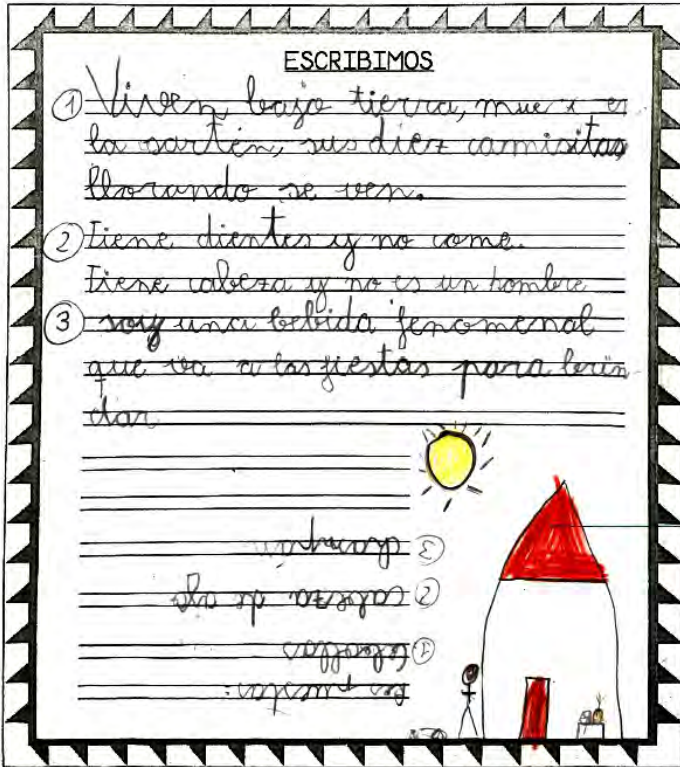 ESCRIBIMOS
① Viven bajo tierra, en
la sartén, sus diez camisitas
llorando se ven.
② Tiene dientes y no come.
Tiene cabeza y no es un hombre
③ soy una bebida fenomenal
que va a las fiestas para brin
dar
Res puestas:
① Cebollas
② cabeza de ajo
③